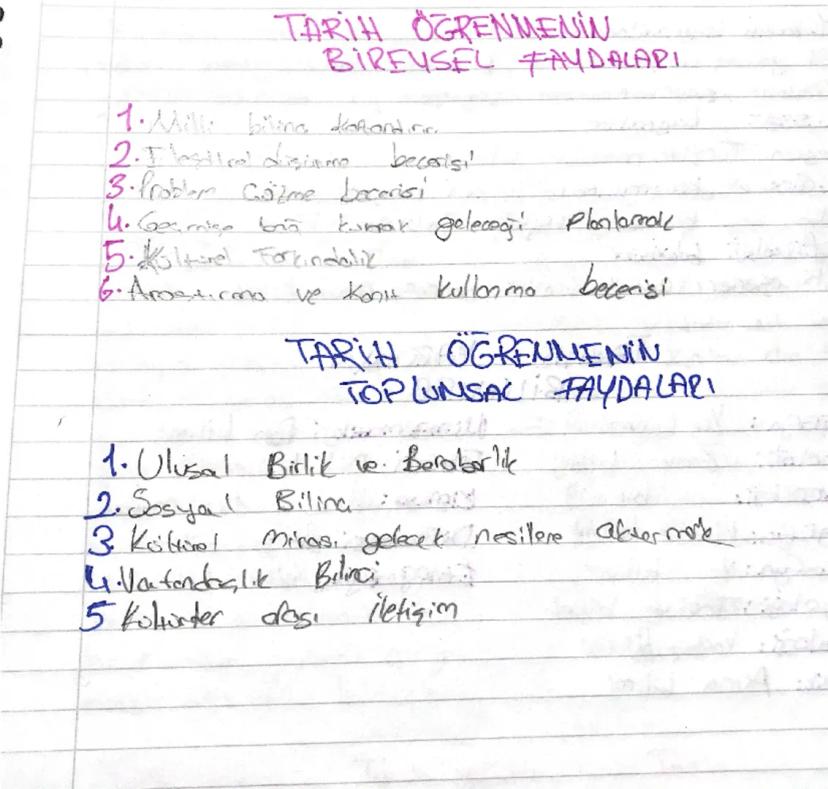 TARİH ÖĞRENMENİN
BİREYSEL FAYDALARI
1. Milli bilinç kazandırır
2. Eleştirel düşünme becerisi
3. Problem Çözme becerisi
4. Geçmişe bağ kurarak geleceği planlamak
5. Kültürel Farkındalık
6. Araştırma ve Kanıt kullanma becerisi
TARİH ÖĞRENMENİN
TOPLUMSAL FAYDALARI
1. Ulusal Birlik ve Beraberlik
2. Sosyal Bilinç
3 Kültürel mirası gelecek nesillere aktarmak
4. Vatandaşlık Bilinci
5 Kültürler arası iletişim